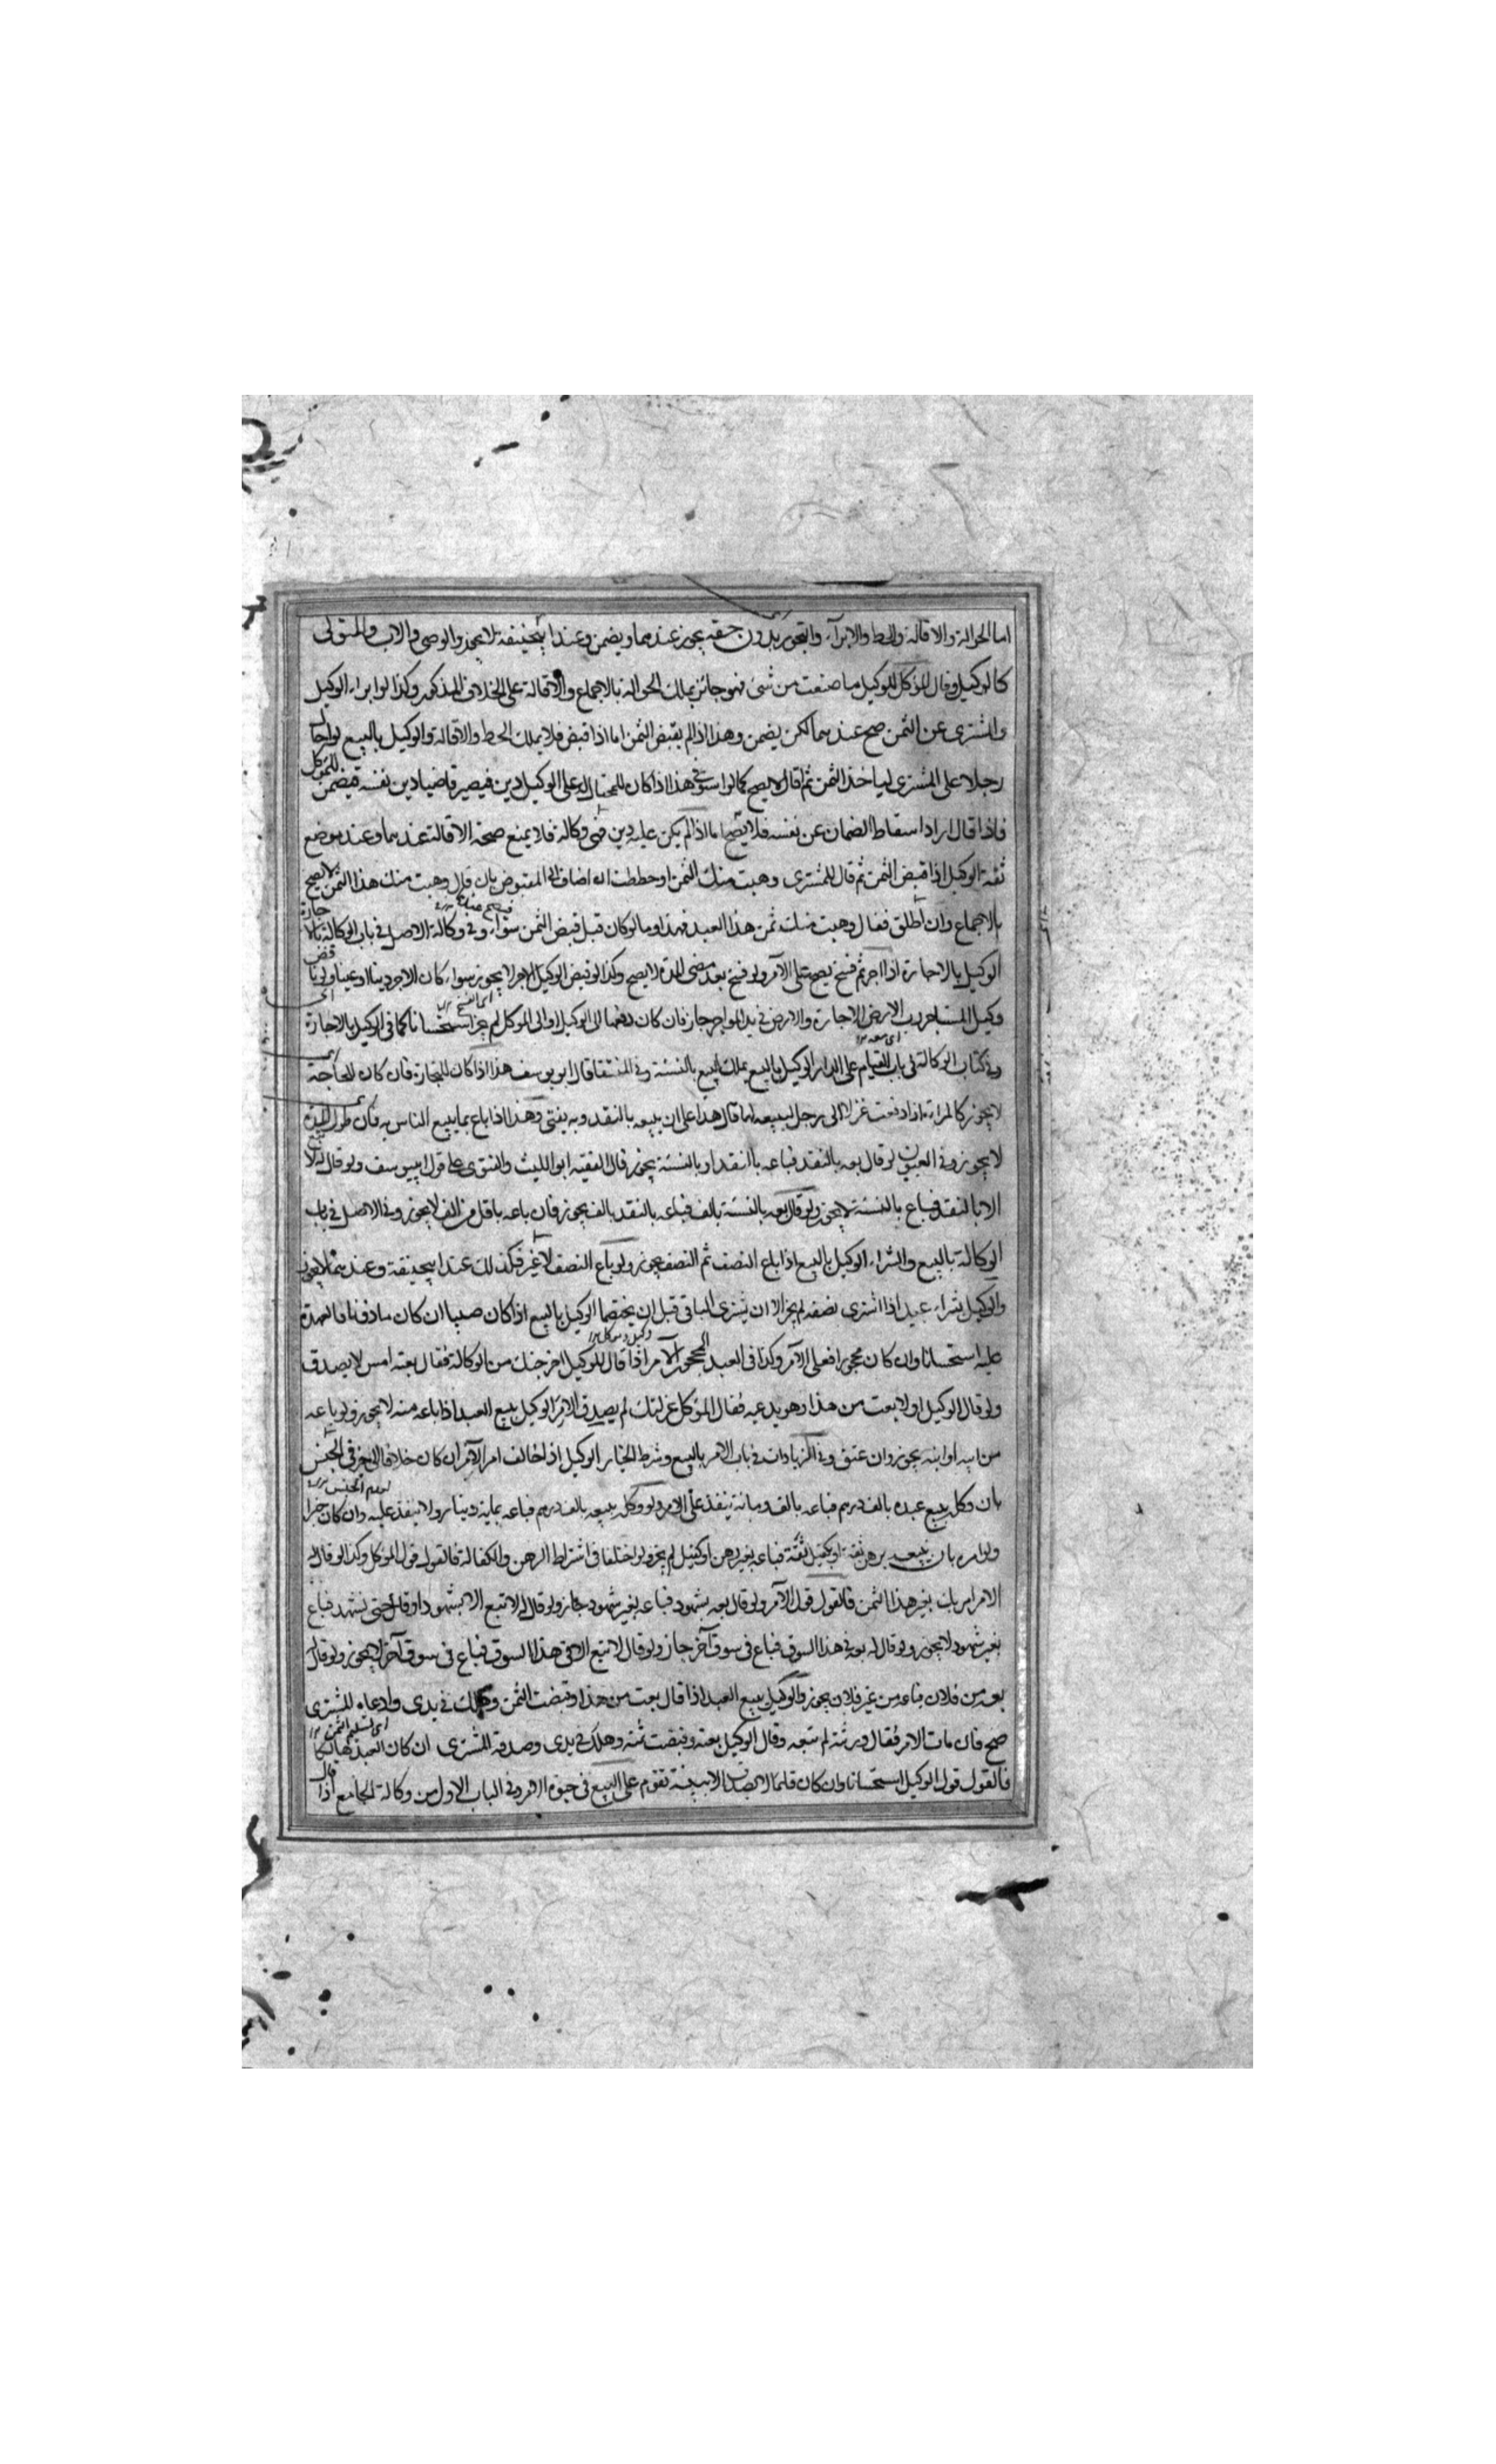 اما الحوالة والاقالة والحط والابرآء والتجوز بدون حقه يجوز عندهما ويضمن وعند ابيحنيفة لا يجوز والوصى والاب والمتولى
كالوكيل وقال الموكل للوكيل ما صنعت من شئ فهو جائز يملك الحوالة بالاجماع والاقالة على الخلاف المذكور وكذا لو ابراء الوكيل
والمشترى عن الثمن صح عندهما لكن يضمن وهذا اذا لم يقبض الثمن اما اذا قبض فلا يملك الحط والاقالة والوكيل بالبيع لو احال
رجلا على المشترى لياخذ الثمن ثم اقال لا يصح كما لو استوفى هذا اذا كان للمحتال له على الوكيل دين فيصير قاضيا دين نفسه فيضمن للموكل
فاذا اقال اراد اسقاط الضمان عن نفسه فلا يصح اما اذا لم يكن عليه دين فهى وكالة فلا يمنع صحة الاقالة عندهما وعند موضع
ثقة الوكيل اذا قبض الثمن ثم قال للمشترى وهبت منك الثمن او حططت ان اضاف الى المقبوض بان قال وهبت منك هذا الثمن لا يصح
بالاجماع وان اطلق فقال وهبت منك ثمن هذا العبد فهذا وما لو كان قبل قبض الثمن سواء وفى وكالة الاصل فى باب الوكالة بالاجارة
الوكيل بالاجارة اذا اجر ثم فسخ يصح على الآمر ولو فسخ بعد مضى المدة لا يصح وكذا لو قبض الوكيل الاجر لا يجوز سواء كان الاجر دينا او عينا ولو ناقض
وكيل المستاجر رب الارض الاجارة والارض فى يد المواجر جاز فان كان دفعها الى الوكيل او الى الموكل لم يجز استحسانا كما فى الوكيل بالاجارة
وفى كتاب الوكالة فى باب القيام على الدار الوكيل بالبيع يملك البيع بالنسئة وفى المنتقا قال ابو يوسف هذا اذا كان للتجارة فان كان للحاجة
لا يجوز كالمراة اذا دفعت غزلا الى رجل ليبيعه لها قال هذا على ان يبيعه بالنقد وبه يفتى وهذا اذا باع بما يبيع الناس به فان طول المدة
لا يجوز وفى العيون لو قال بعه بالنقد فباعه بالنقد او بالنسئة يجوز قال الفقيه ابو الليث والفتوى على قول ابيوسف ولو قال له لا تبع
الا بالنقد فباع بالنسئة لا يجوز ولو قال بعه بالنسئة بالف فباعه بالنقد بالف يجوز فان باعه باقل من الف لا يجوز وفى الاصل فى باب
الوكالة بالبيع والشراء الوكيل بالبيع اذا باع النصف ثم النصف يجوز ولو باع النصف لا غير فكذلك عند ابيحنيفة وعندهما لا يجوز
والوكيل بشراء عبد اذا اشترى نصفه لم يجز الا ان يشترى الباقى قبل ان يختصما الوكيل بالبيع اذا كان صبيا ان كان ماذونا فالعهدة
عليه استحسانا وان كان محجورا فعلى الآمر وكذا فى العبد المحجور الآمر اذا قال للوكيل اخرجتك من الوكالة فقال بعته امس لا يصدق
ولو قال الوكيل اولا بعت من هذا وهو يدعيه فقال الموكل عزلتك لم يصدق الآمر الوكيل ببيع العبد اذا باعه منه لا يجوز ولو باعه
من ابيه او ابنه يجوز وان عتق وفى الزيادات فى باب الامر بالبيع وشرط الخيار الوكيل اذا خالف امر الآمر ان كان خلافا الى خير فى الجنس
بان وكل ببيع عبده بالف درهم فباعه بالف ومائة ينفذ على الآمر ولو وكله ببيعه بالف درهم فباعه بماية دينار ولا ينفذ عليه وان كان خيرا
ولو امر بان يبيعه برهن ثقة او بكفيل ثقة فباعه بغير رهن او كفيل لم يجز ولو اختلفا فى اشتراط الرهن والكفالة فالقول قول الموكل وكذا لو قال له
الامر امرتك بغير هذا الثمن فالقول قول الآمر ولو قال بعه بشهود فباعه بغير شهود جاز ولو قال له لا تبع الا بشهود او قال حتى تشهد فباع
بغير شهود لا يجوز ولو قال له بعه فى هذا السوق فباع فى سوق آخر جاز ولو قال لا تبع الا فى هذا السوق فباع فى سوق آخر لا يجوز ولو قال
بعه من فلان فباعه من غير فلان يجوز والوكيل ببيع العبد اذا قال بعت من هذا وقبضت الثمن وهلك فى يدى وادعاه المشترى
صح فان مات الآمر فقال ورثته لم تبعه وقال الوكيل بعته وقبضت ثمنه وهلك فى يدى وصدقه المشترى ان كان العبد هالكا
فالقول قول الوكيل استحسانا وان كان قائما لا يصدق الا ببينة تقوم على البيع فى حيوة الآمر وفى الباب الاول من وكالة الجامع اذا قال